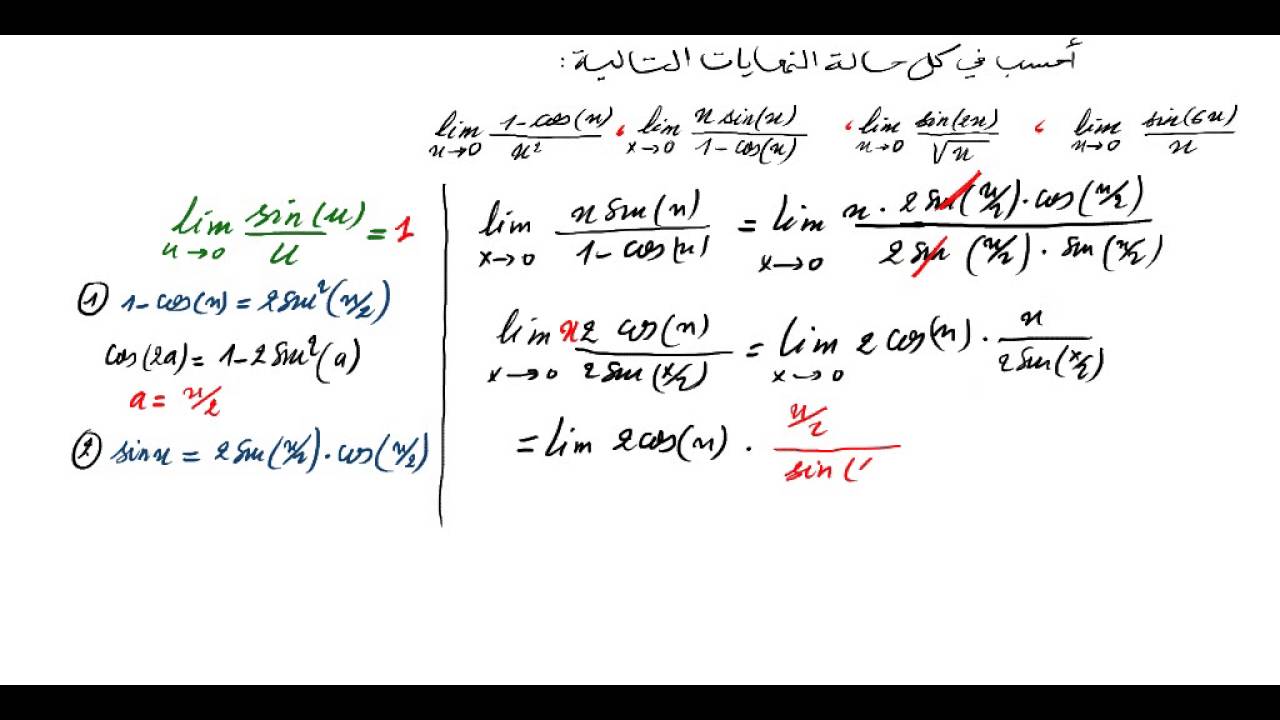 أحسب في كل حالة النهايات التالية :
lim x→0 (1-cos(x))/x² ، lim x→0 (x sin(x))/(1-cos(x)) ، lim x→0 sin(2x)/√x ، lim x→0 sin(6x)/x
lim u→0 sin(u)/u = 1
① 1-cos(x) = 2sin²(x/2)
cos(2a) = 1-2sin²(a)
a = x/2
② sin x = 2sin(x/2)·cos(x/2)
lim x→0 (x sin(x))/(1-cos(x)) = lim x→0 (x·2sin(x/2)·cos(x/2))/(2sin(x/2)·sin(x/2))
lim x→0 (x2 cos(x))/(2sin(x/2)) = lim x→0 2cos(x)·x/(2sin(x/2))
= lim 2cos(x)·(x/2)/(sin(